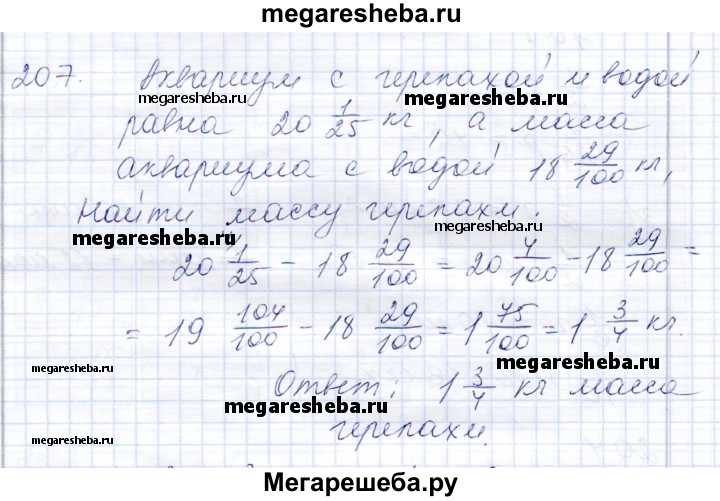 megaresheba.ru
207. Аквариум с черепахой и водой
megaresheba.ru megaresheba.ru
равна 20 1/25 кг, а масса
аквариума с водой 18 29/100 кг,
Найти массу черепахи.
megaresheba.ru megaresheba.ru
20 1/25 - 18 29/100 = 20 4/100 - 18 29/100 =
= 19 104/100 - 18 29/100 = 1 75/100 = 1 3/4 кг.
megaresheba.ru megaresheba.ru
Ответ: 1 3/4 кг масса
megaresheba.ru megaresheba.ru
черепахи.
megaresheba.ru
Мегарешеба.ру